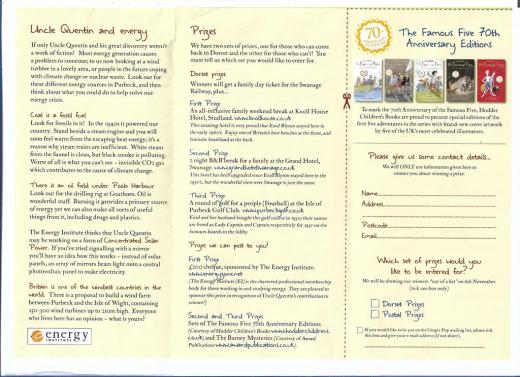 Uncle Quentin and energy
If only Uncle Quentin and his great discovery weren't
a work of fiction!  Most energy generation causes
a problem to someone; to us now looking at a wind
turbine in a lovely area, or people in the future coping
with climate change or nuclear waste.  Look out for
these different energy sources in Purbeck, and then
think about what you could do to help solve our
energy crisis.
Coal is a fossil fuel
Look for fossils in it!  In the 1940s it powered our
country.  Stand beside a steam engine and you will
soon feel warm from the escaping heat energy; it's a
reason why steam trains are inefficient.  White steam
from the funnel is clean, but black smoke is polluting.
Worst of all is what you can't see – invisible CO2 gas
which contributes to the cause of climate change.
There is an oil field under Poole Harbour
Look out for the drilling rig at Goathorn. Oil is
wonderful stuff.  Burning it provides a primary source
of energy yet we can also make all sorts of useful
things from it, including drugs and plastics.
The Energy Institute thinks that Uncle Quentin
may be working on a form of Concentrated Solar
Power.  If you've tried signalling with a mirror
you'll have an idea how this works – instead of solar
panels, an array of mirrors beam light onto a central
photovoltaic panel to make electricity.
Britain is one of the windiest countries in the
world.  There is a proposal to build a wind farm
between Purbeck and the Isle of Wight, containing
150-300 wind turbines up to 210m high.  Everyone
who lives here has an opinion – what is yours?
energy
INSTITUTE
Prizes
We have two sets of prizes, one for those who can come
back to Dorset and the other for those who can't!  You
must tell us which set you would like to enter for.
Dorset prizes
Winners will get a family day ticket for the Swanage
Railway, plus...
First Prize
An all-inclusive family weekend break at Knoll House
Hotel, Studland. www.knollhouse.co.uk
This amazing hotel is very proud that Enid Blyton stayed here in the
early 1960's.  Enjoy one of Britain's best beaches at the front, and
fantastic heathland at the back.
Second Prize
2 night B&B break for a family at the Grand Hotel,
Swanage. www.grandhotelswanage.co.uk
This hotel has been upgraded since Enid Blyton stayed here in the
1950's, but the wonderful view over Swanage is just the same.
Third Prize
A round of golf for 4 people (Fourball) at the Isle of
Purbeck Golf Club. www.purbeckgolf.co.uk
Enid and her husband bought this golf course in 1950; their names
are listed as Lady Captain and Captain respectively for 1951 on the
honours boards in the lobby.
Prizes we can post to you!
First Prize
£200 cheque, sponsored by The Energy Institute.
www.energyinst.net
(The Energy Institute (EI) is the chartered professional membership
body for those working in and studying energy.  They are pleased to
sponsor this prize in recognition of Uncle Quentin's contribution to
science!)
Second and Third Prizes
Sets of The Famous Five 70th Anniversary Editions
(Courtesy of Hodder Children's Books www.hodderchildrens
.co.uk) and The Barney Mysteries (Courtesy of Award
Publications www.awardpublications.co.uk).
70
The Famous Five 70th
Anniversary Editions
To mark the 70th Anniversary of the Famous Five, Hodder
Children's Books are proud to present special editions of the
first 5 adventures in the series with brand-new cover artwork
by five of the UK's most celebrated illustrators.
Please give us some contact details...
We will ONLY use information given here to
contact you about winning a prize.
Name
Address
Postcode
Email
Which set of prizes would
you like to be entered for?
We will be drawing our winners "out of a hat" on 6th November.
(tick one box only)
Dorset Prizes
Postal Prizes
If you would like to be put on the Ginger Pop mailing list, please tick
this box and give your e-mail address (if not above).